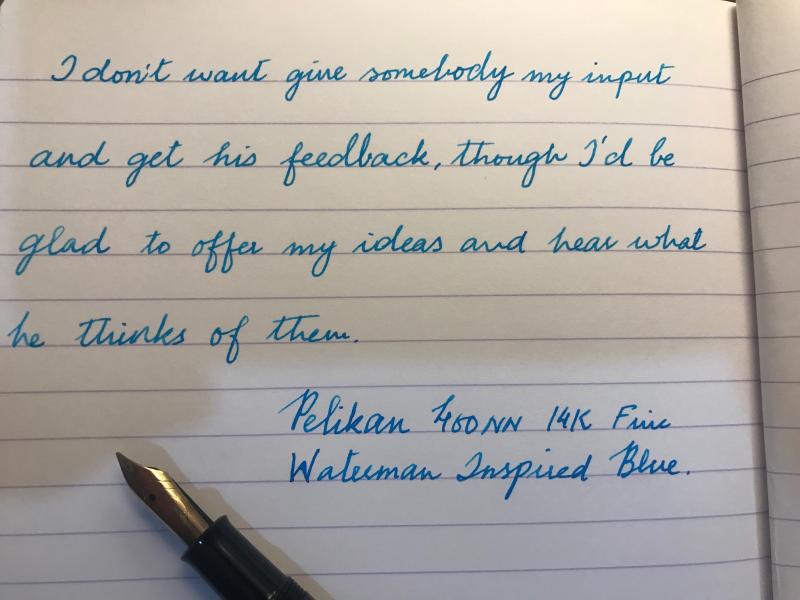 I don't want give somebody my input
and get his feedback, though I'd be
glad to offer my ideas and hear what
he thinks of them.
Pelikan 400NN 14K Fine
Waterman Inspired Blue.